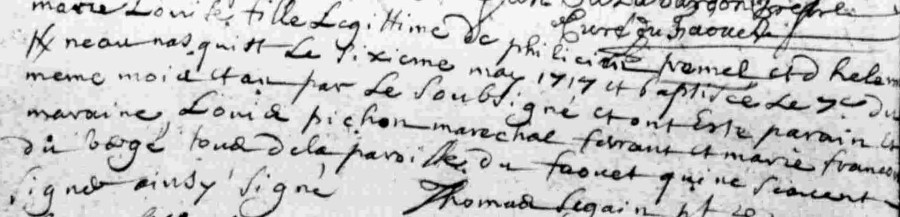 Curé du Faouet
marie Louise fille Legittime de philicien fremel et d helene
neau nasquist Le sixieme may 1717 et baptisée Le 7e du
meme mois et an par Le soubsigné et ont Esté parain Et
maraine Louis pichon marechal ferrant et marie francoi
du bogé tous de la paroisse du faouet qui ne scavent
signer ainsy signé Thomas Segain pt